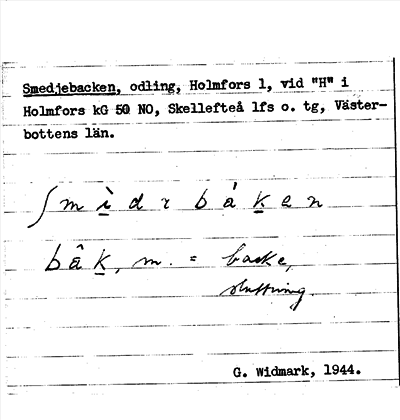 Smedjebacken, odling, Holmfors 1, vid "H" i
Holmfors kG 50 NO, Skellefteå lfs o. tg, Väster-
bottens län.
ʃmìdɩbáken
båk, m. = backe,
sluttning.
G. Widmark, 1944.